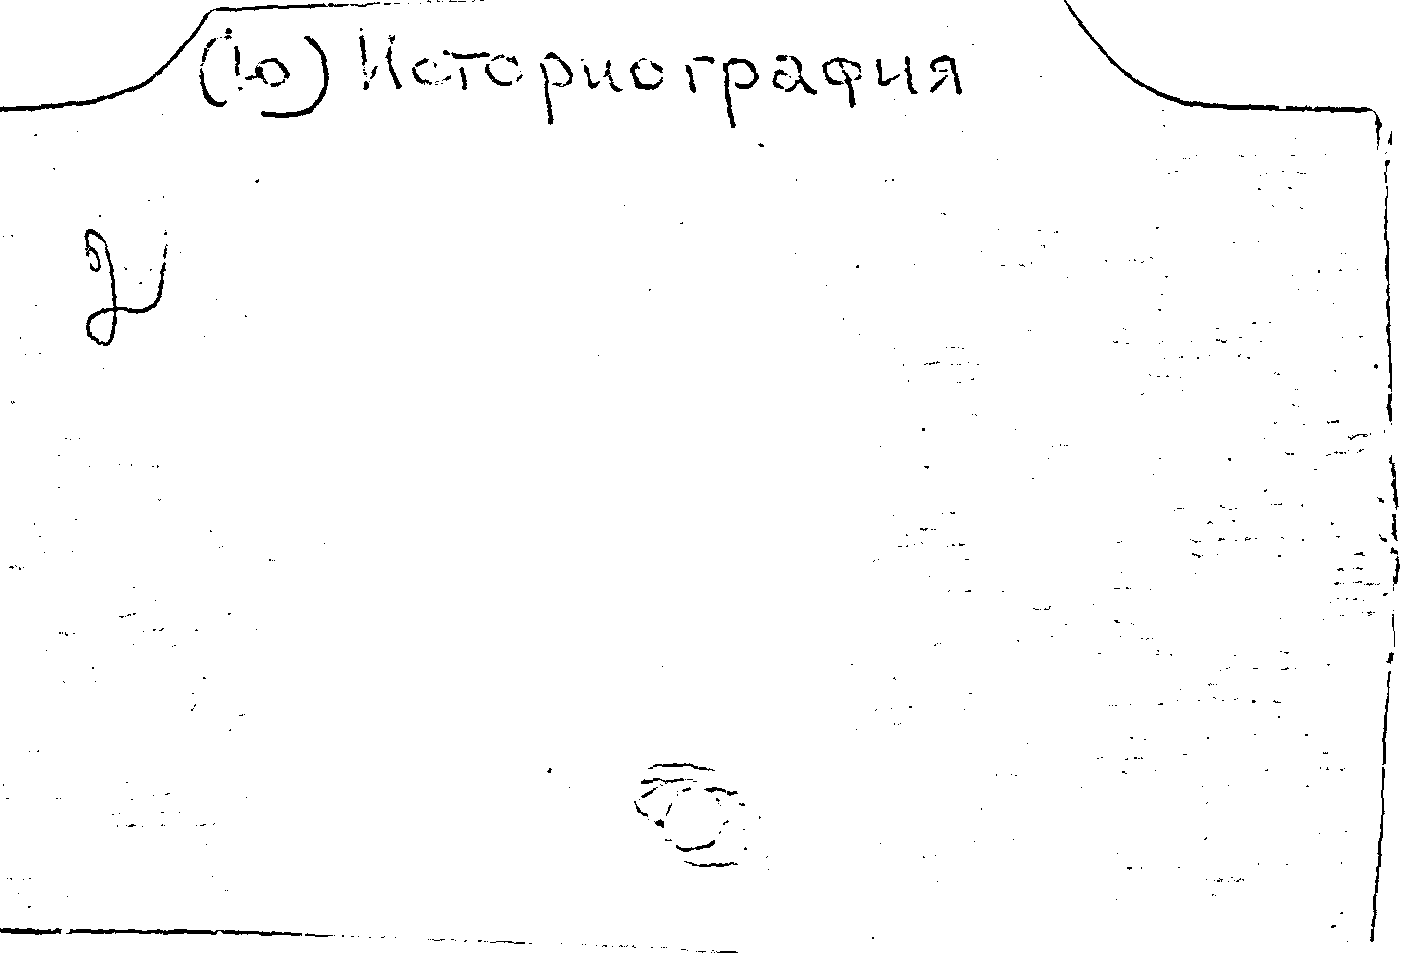 (ю) Историография